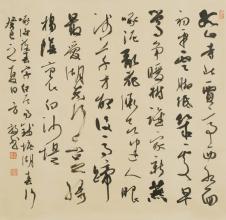 孤山寺北賈亭西水面
初平雲腳低幾處早
鶯爭暖樹誰家新燕
啄泥亂花漸欲迷人眼
淺草才能沒馬蹄
最愛湖東行不足綠
楊陰裏白沙堤
春字白居易詩錢塘湖春行
夏日